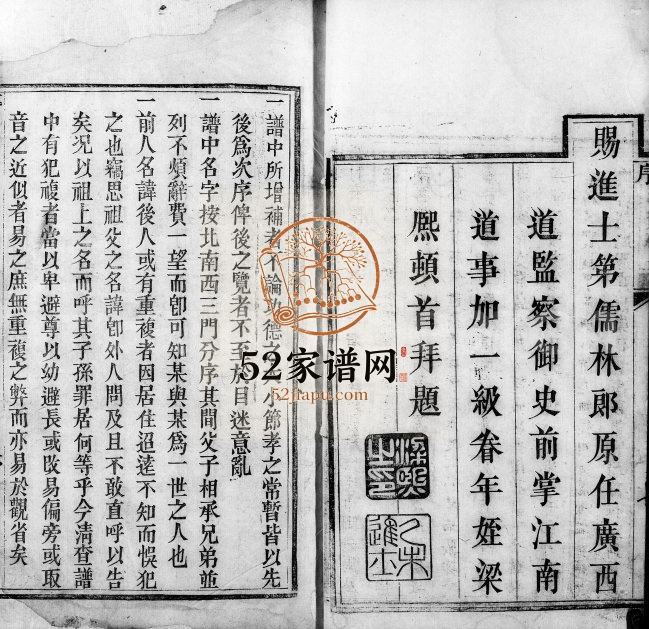 賜進士第儒林郎原任廣西
道監察御史前掌江南
道事加一級眷年姪梁
熙頓首拜題
梁熙之印
乙未進士
序
一譜中所增補者不論功德之大小節孝之常暫皆以先
後爲次序俾後之覽者不至於目迷意亂
一譜中名字按北南西三門分序其間父子相承兄弟並
列不煩辭費一望而卽可知某與某爲一世之人也
一前人名諱後人或有重複者因居住迢遠不知而悞犯
之也竊思祖父之名諱卽外人問及且不敢直呼以告
矣況以祖上之名而呼其子孫罪居何等乎今清查譜
中有犯複者當以卑避尊以幼避長或改易偏旁或取
音之近似者易之庶無重複之弊而亦易於觀省矣
52家谱网
52jiapu.com